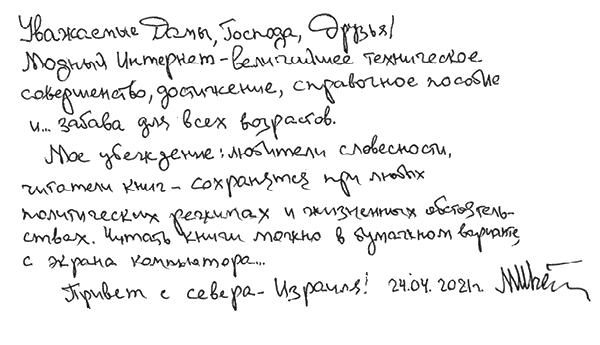 Уважаемые Дамы, Господа, Друзья!
Модный Интернет - величайшее техническое
совершенство, достижение, справочное пособие
и... забава для всех возрастов.
Мое убеждение: любители словесности,
читатели книг - сохранятся при любых
политических режимах и жизненных обстоятель-
ствах. Читать книги можно в бумажном варианте,
с экрана компьютора...
Привет с севера - Израиля! 24.04.2021г.